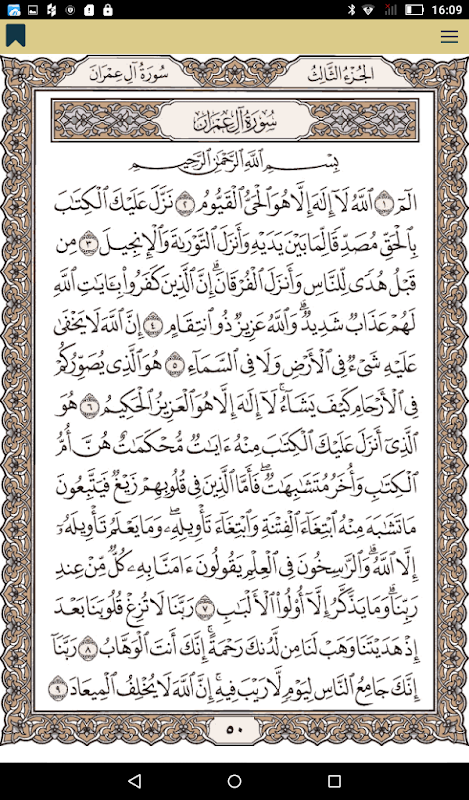 16:09
سُورَةُ آلِ عِمْرَانَ
الجُزْءُ الثَّالِثُ
سُورَةُ آلِ عِمْرَانَ
بِسْمِ ٱللَّهِ ٱلرَّحْمَٰنِ ٱلرَّحِيمِ
الٓمٓ ١ ٱللَّهُ لَآ إِلَٰهَ إِلَّا هُوَ ٱلْحَىُّ ٱلْقَيُّومُ ٢ نَزَّلَ عَلَيْكَ ٱلْكِتَٰبَ
بِٱلْحَقِّ مُصَدِّقًا لِّمَا بَيْنَ يَدَيْهِ وَأَنزَلَ ٱلتَّوْرَىٰةَ وَٱلْإِنجِيلَ ٣ مِن
قَبْلُ هُدًى لِّلنَّاسِ وَأَنزَلَ ٱلْفُرْقَانَۗ إِنَّ ٱلَّذِينَ كَفَرُوا۟ بِـَٔايَٰتِ ٱللَّهِ
لَهُمْ عَذَابٌ شَدِيدٌۗ وَٱللَّهُ عَزِيزٌ ذُو ٱنتِقَامٍ ٤ إِنَّ ٱللَّهَ لَا يَخْفَىٰ
عَلَيْهِ شَىْءٌ فِى ٱلْأَرْضِ وَلَا فِى ٱلسَّمَآءِ ٥ هُوَ ٱلَّذِى يُصَوِّرُكُمْ
فِى ٱلْأَرْحَامِ كَيْفَ يَشَآءُۚ لَآ إِلَٰهَ إِلَّا هُوَ ٱلْعَزِيزُ ٱلْحَكِيمُ ٦ هُوَ
ٱلَّذِىٓ أَنزَلَ عَلَيْكَ ٱلْكِتَٰبَ مِنْهُ ءَايَٰتٌ مُّحْكَمَٰتٌ هُنَّ أُمُّ
ٱلْكِتَٰبِ وَأُخَرُ مُتَشَٰبِهَٰتٌۖ فَأَمَّا ٱلَّذِينَ فِى قُلُوبِهِمْ زَيْغٌ فَيَتَّبِعُونَ
مَا تَشَٰبَهَ مِنْهُ ٱبْتِغَآءَ ٱلْفِتْنَةِ وَٱبْتِغَآءَ تَأْوِيلِهِۦۗ وَمَا يَعْلَمُ تَأْوِيلَهُۥٓ
إِلَّا ٱللَّهُۗ وَٱلرَّٰسِخُونَ فِى ٱلْعِلْمِ يَقُولُونَ ءَامَنَّا بِهِۦ كُلٌّ مِّنْ عِندِ
رَبِّنَاۗ وَمَا يَذَّكَّرُ إِلَّآ أُو۟لُوا۟ ٱلْأَلْبَٰبِ ٧ رَبَّنَا لَا تُزِغْ قُلُوبَنَا بَعْدَ
إِذْ هَدَيْتَنَا وَهَبْ لَنَا مِن لَّدُنكَ رَحْمَةًۚ إِنَّكَ أَنتَ ٱلْوَهَّابُ ٨ رَبَّنَآ
إِنَّكَ جَامِعُ ٱلنَّاسِ لِيَوْمٍ لَّا رَيْبَ فِيهِۚ إِنَّ ٱللَّهَ لَا يُخْلِفُ ٱلْمِيعَادَ ٩
٥٠